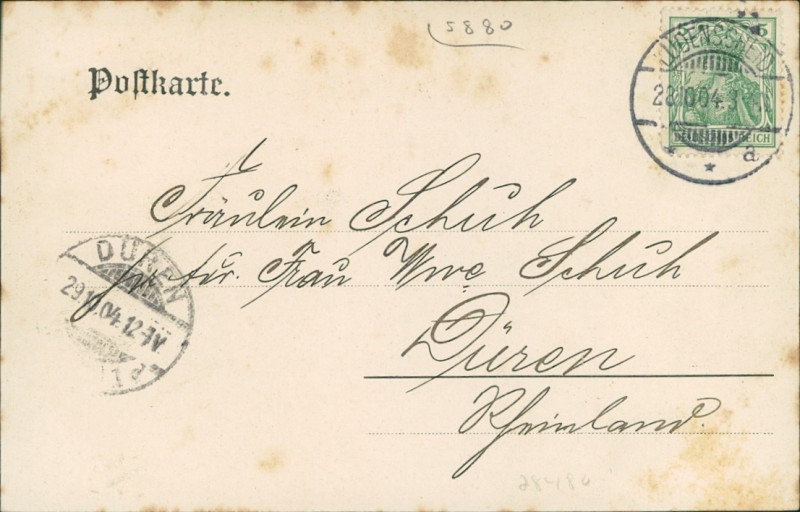 5880
Postkarte.
5
28.10.04.
REICH
a
Fräulein Schuh
Frau Wwe Schuh
Düren
Rheinland.
DÜREN
29.10.04.12-1V.
1 d
28480